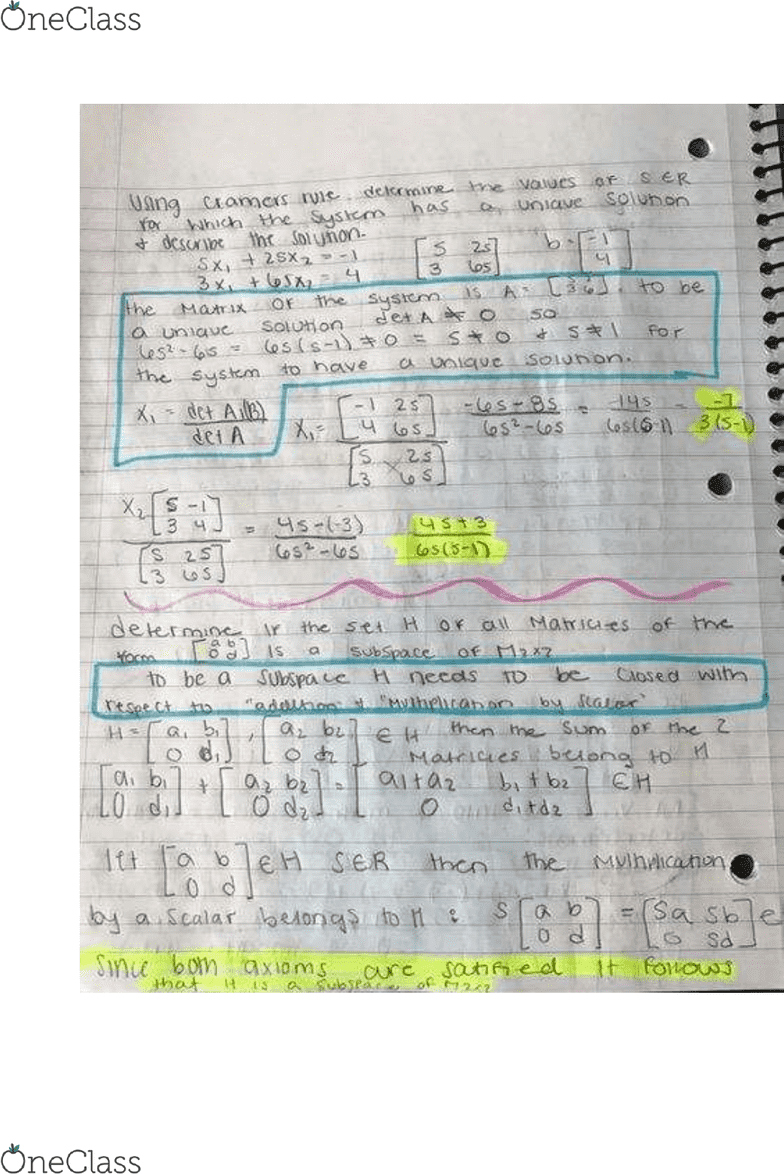 OneClass
Using cramers rule determine the values of S ∈ R
for which the system has a unique solution
& describe the solution.
Sx₁ + 2Sx₂ = -1
3x₁ + 6Sx₂ = 4
[S 2S
3 6S]
b = [-1
4]
the Matrix of the system is A = [S 2S
3 6S]. to be
a unique solution det A ≠ 0 so
6S² - 6S = 6S(S-1) ≠ 0 = S ≠ 0 & S ≠ 1 for
the system to have a unique solution.
X₁ = det A₁(B)
det A
X₁ = [-1 2S
4 6S]
[S 2S
3 6S]
-6S - 8S = -14S = -7
6S² - 6S 6S(S-1) 3(S-1)
X₂ [S -1
3 4] = 4S-(-3) 4S+3
[S 2S 6S² - 6S 6S(S-1)
3 6S]
determine if the set H of all Matricies of the
form [a b
0 d] is a subspace of M2x2
to be a subspace H needs to be closed with
respect to "addition & "Multiplication by scalar"
H = [a₁ b₁
0 d₁], [a₂ b₂
0 d₂] ∈ H then the sum of the 2
Matricies belong to H
[a₁ b₁ + [a₂ b₂ = [a₁+a₂ b₁+b₂ ] ∈ H
0 d₁] 0 d₂] 0 d₁+d₂
let [a b
0 d] ∈ H S∈R then the Multiplication
by a scalar belongs to H : S [a b
0 d] = [Sa Sb
0 Sd] ∈
Since both axioms are satified it follows
that H is a subspace of M2x2
OneClass